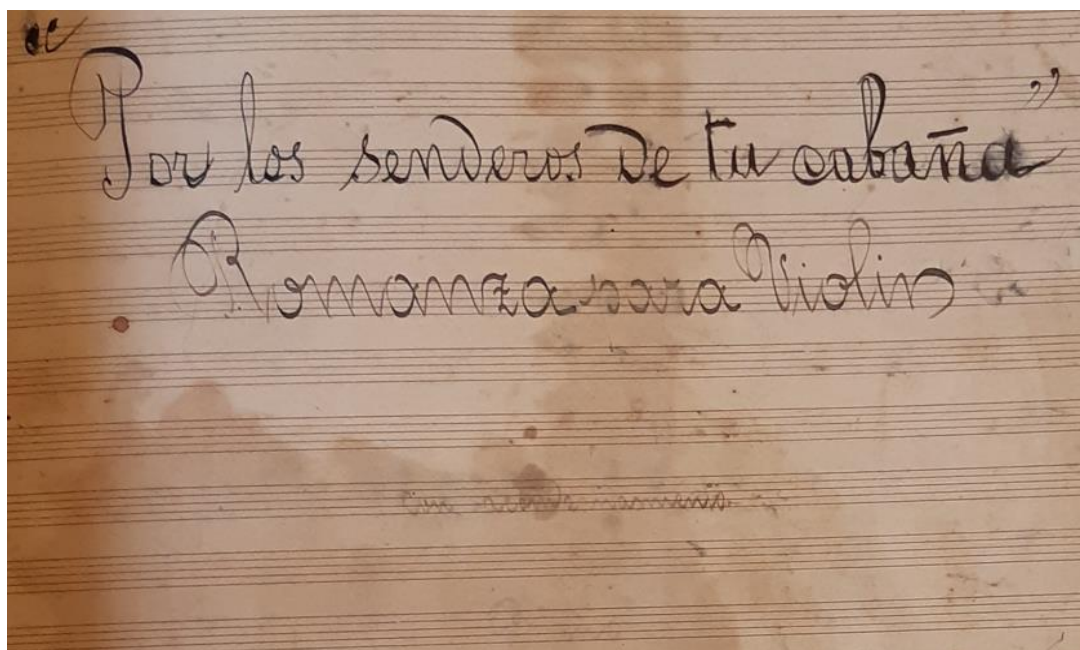 "Por los senderos de tu cabaña"
Romanza para Violin